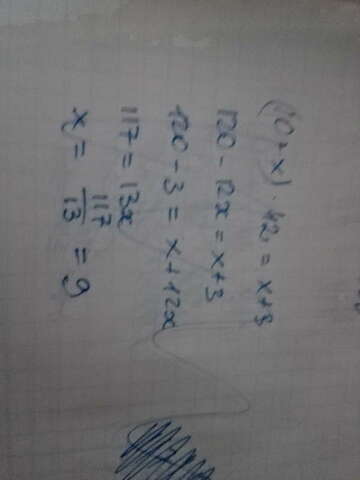 (10-x) · 12 = x+3
120 - 12x = x+3
120 - 3 = x+12x
117 = 13x
x = 117/13 = 9